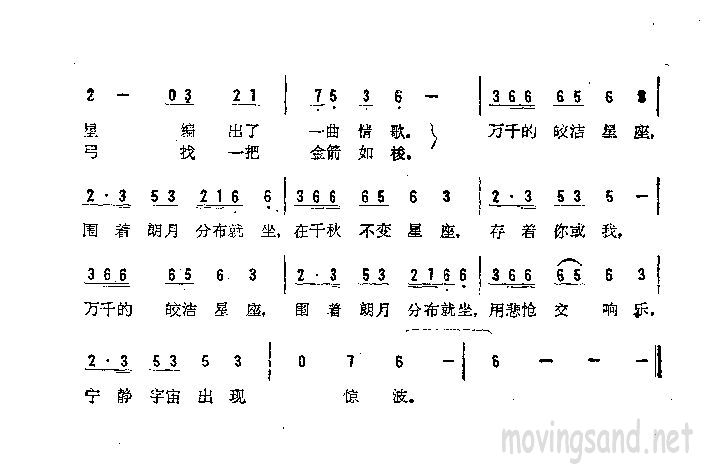 2 — 0 3 2 1 | 7 5 3 6 — | 3 6 6 6 5 6 3 |
星 编 出了 一曲 情 歌。 万千的 皎洁 星 座,
弓 找 一把 金箭 如 梭。
2 · 3 5 3 2 1 6 6 | 3 6 6 6 5 6 3 | 2 · 3 5 3 5 — |
围 着 朗月 分布就 坐, 在千秋 不变 星 座, 存 着 你或 我,
3 6 6 6 5 6 3 | 2 · 3 5 3 2 1 6 6 | 3 6 6 6 5 6 3 |
万千的 皎洁 星 座, 围 着 朗月 分布就 坐, 用悲怆 交 响 乐,
2 · 3 5 3 5 3 | 0 7 6 — | 6 — — — ‖
宁 静 宇宙 出 现 惊 波。
movingsand.net